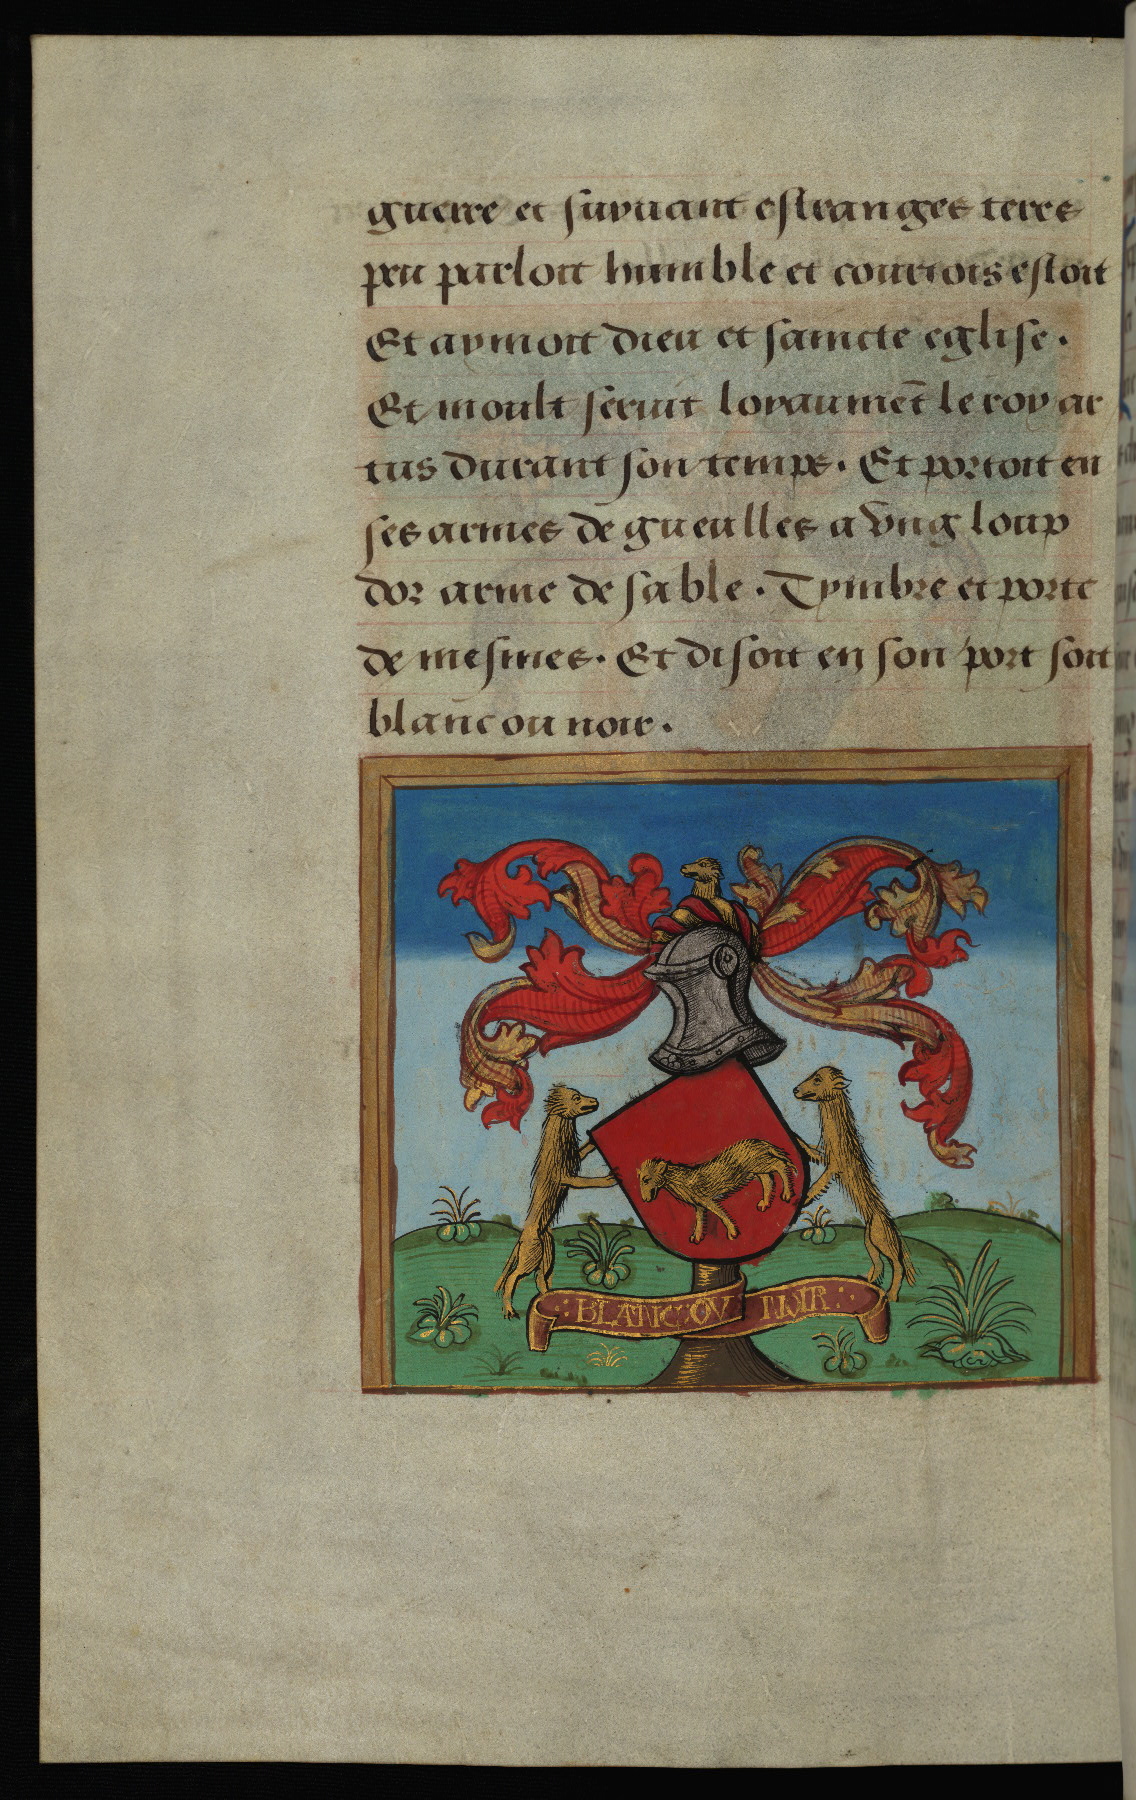 guerre et suyuant estranges terres
peu parloit humble et courtois estoit
Et aymoit dieu et saincte eglise.
Et moult seruit loyaumēt le roy ar
tus durant son temps. Et portoit en
ses armes de gueulles a vng loup
dor arme de sable. Tymbre et porte
de mesmes. Et disoit en son port soit
blanc ou noir.
BLANC OV NOIR